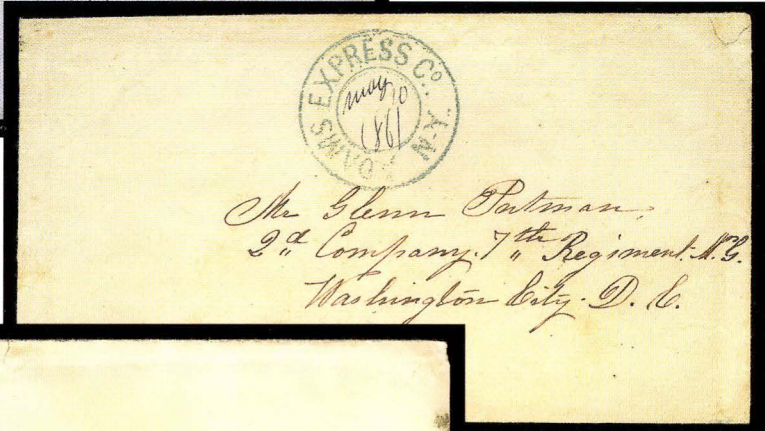 ADAMS EXPRESS Co. N-Y.
may 10
1861
Mr Glenn Putman,
2d Company. 7th Regiment. N.G.
Washington City. D. C.